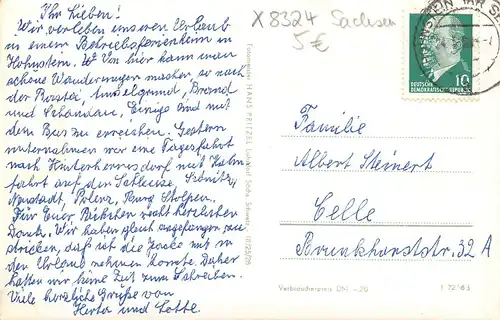 Ihr Lieben!
Wir verleben unseren Urlaub
in einem Betriebsferienheim in
Hohnstein. Von hier kann man
schöne Wanderungen machen, so nach
der Bastei, Amselgrund, Brand
und Schandau, Einige sind mit
dem Bus zu erreichen. Gestern
unternahmen wir eine Tagesfahrt
nach Hinterhermsdorf mit Kahn
fahrt auf der Schleuse, Sebnitz,
Neustadt, Polenz, Burg Stolpen.
Für Euer Päckchen recht herzlichen
Dank. Wir haben gleich angefangen zu
stricken, daß ich die Jacke mit in
den Urlaub nehmen konnte. Daher
hatten wir keine Zeit zum Schreiben.
Viele herzliche Grüße von
Herta und Lotte.
Fotograf HANS PRITZEL
X 8324 Sachsen
5€
DEUTSCHE
DEMOKRATISCHE REPUBLIK
10
Familie
Albert Steinert
Celle
Brunkhorststr. 32 A
Verbraucherpreis DM -.20